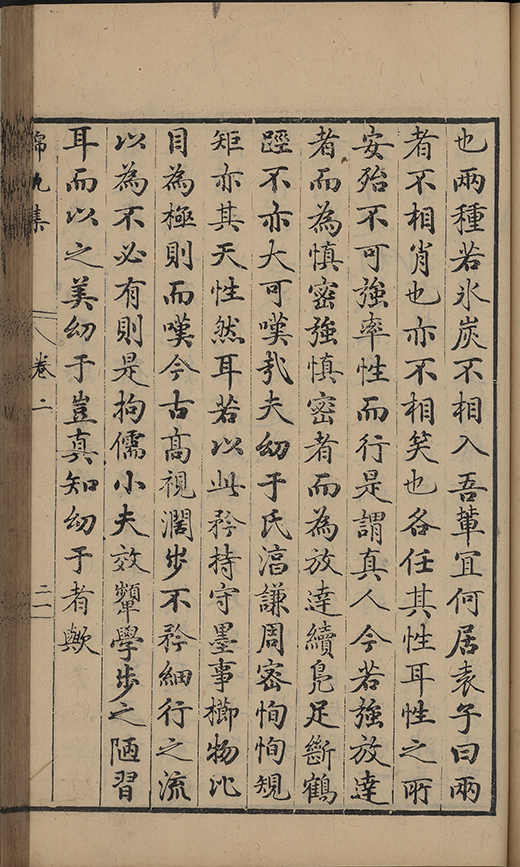 也兩種若氷炭不相入吾輩冝何居袁子曰兩
者不相肖也亦不相笑也各任其性耳性之所
安殆不可強率性而行是謂真人今若強放達
者而為慎密強慎密者而為放達續鳧足斷鶴
頸不亦大可嘆哉夫幼于氏淳謙周密恂恂規
矩亦其天性然耳若以此矜持守墨事櫛物比
目為極則而嘆今古高視濶步不矜細行之流
以為不必有則是拘儒小夫效顰學步之陋習
耳而以之美幼于豈真知幼于者歟
錦帆集
卷二
二一